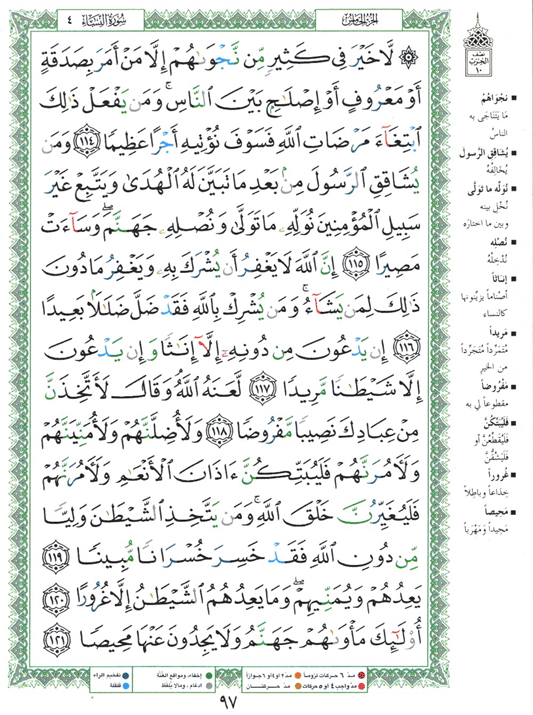 سُورَةُ النِّسَاءِ ٤
الجزء الخامس
۞ لَّا خَيْرَ فِي كَثِيرٍ مِّن نَّجْوَىٰهُمْ إِلَّا مَنْ أَمَرَ بِصَدَقَةٍ
أَوْ مَعْرُوفٍ أَوْ إِصْلَٰحٍۭ بَيْنَ النَّاسِ ۚ وَمَن يَفْعَلْ ذَٰلِكَ
ابْتِغَآءَ مَرْضَاتِ اللَّهِ فَسَوْفَ نُؤْتِيهِ أَجْرًا عَظِيمًا ١١٤ وَمَن
يُشَاقِقِ الرَّسُولَ مِنۢ بَعْدِ مَا تَبَيَّنَ لَهُ الْهُدَىٰ وَيَتَّبِعْ غَيْرَ
سَبِيلِ الْمُؤْمِنِينَ نُوَلِّهِۦ مَا تَوَلَّىٰ وَنُصْلِهِۦ جَهَنَّمَ ۖ وَسَآءَتْ
مَصِيرًا ١١٥ إِنَّ اللَّهَ لَا يَغْفِرُ أَن يُشْرَكَ بِهِۦ وَيَغْفِرُ مَا دُونَ
ذَٰلِكَ لِمَن يَشَآءُ ۚ وَمَن يُشْرِكْ بِاللَّهِ فَقَدْ ضَلَّ ضَلَٰلًۢا بَعِيدًا
١١٦ إِن يَدْعُونَ مِن دُونِهِۦٓ إِلَّآ إِنَٰثًا وَإِن يَدْعُونَ
إِلَّا شَيْطَٰنًا مَّرِيدًا ١١٧ لَّعَنَهُ اللَّهُ ۘ وَقَالَ لَأَتَّخِذَنَّ
مِنْ عِبَادِكَ نَصِيبًا مَّفْرُوضًا ١١٨ وَلَأُضِلَّنَّهُمْ وَلَأُمَنِّيَنَّهُمْ
وَلَءَامُرَنَّهُمْ فَلَيُبَتِّكُنَّ ءَاذَانَ الْأَنْعَٰمِ وَلَءَامُرَنَّهُمْ
فَلَيُغَيِّرُنَّ خَلْقَ اللَّهِ ۚ وَمَن يَتَّخِذِ الشَّيْطَٰنَ وَلِيًّا
مِّن دُونِ اللَّهِ فَقَدْ خَسِرَ خُسْرَانًا مُّبِينًا ١١٩
يَعِدُهُمْ وَيُمَنِّيهِمْ ۖ وَمَا يَعِدُهُمُ الشَّيْطَٰنُ إِلَّا غُرُورًا ١٢٠
أُو۟لَٰٓئِكَ مَأْوَىٰهُمْ جَهَنَّمُ وَلَا يَجِدُونَ عَنْهَا مَحِيصًا ١٢١
نصف
الحزب
١٠
■ نجواهم
ما يتناجى به
الناس
■ يشاقق الرسول
يخالفه
■ نوله ما تولى
نخل بينه
وبين ما اختاره
■ نصله
ندخله
■ إناثاً
أصناماً يزينونها
كالنساء
■ مريداً
متمرداً متجرداً
من الخير
■ مفروضاً
مقطوعاً لي به
■ فليبتكن
فليقطعن أو
فليشقن
■ غروراً
خداعاً وباطلاً
■ محيصاً
محيداً ومهرباً
مد ٦ حركات لزوماً ● مد ٢ أو ٤ أو ٦ جوازاً
مد واجب ٤ أو ٥ حركات ● مد حركتان
إخفاء، ومواقع الغنة
إدغام، وما لا يلفظ
تفخيم الراء
قلقلة
٩٧